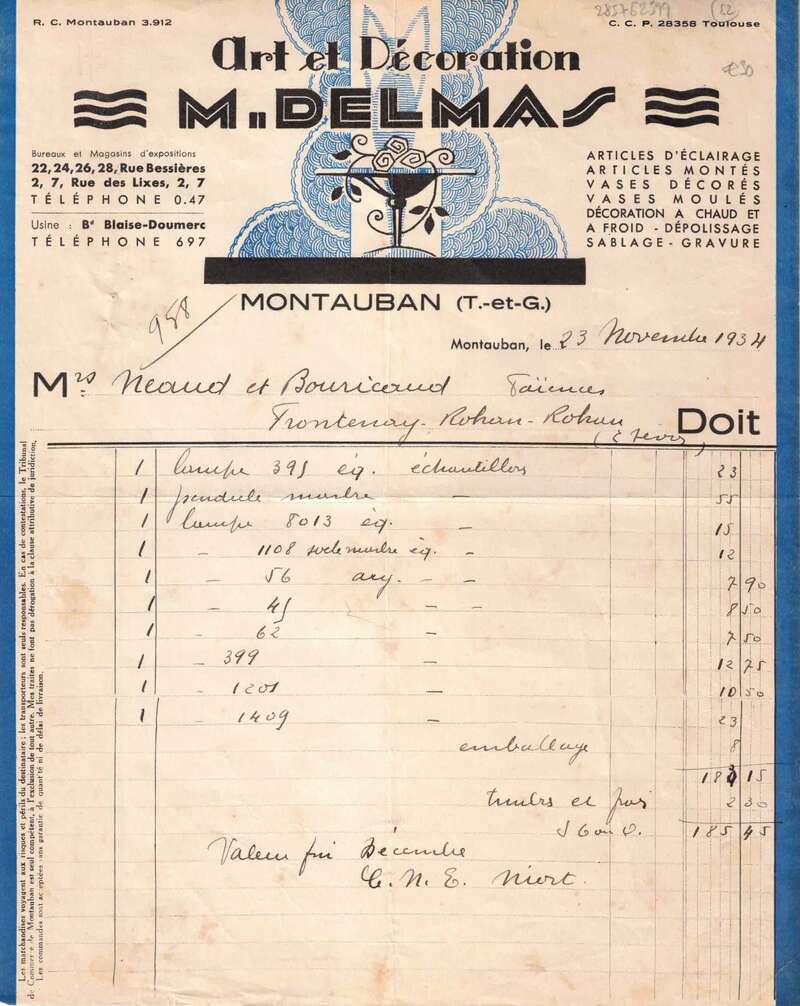 R. C. Montauban 3.912
C. C. P. 28358 Toulouse
285762399 (82)
€30
Art et Décoration
M. DELMAS
Bureaux et Magasins d'expositions
22, 24, 26, 28, Rue Bessières
2, 7, Rue des Lixes, 2, 7
TÉLÉPHONE 0.47
Usine : Bd Blaise-Doumerc
TÉLÉPHONE 697
ARTICLES D'ÉCLAIRAGE
ARTICLES MONTÉS
VASES DÉCORÉS
VASES MOULÉS
DÉCORATION A CHAUD ET
A FROID - DÉPOLISSAGE
SABLAGE - GRAVURE
MONTAUBAN (T.-et-G.)
958
Montauban, le 23 Novembre 1934
Mrs Neaud et Bouricaud Faïences
Frontenay-Rohan-Rohan
(2 Sèvres)
Doit
1 lampe 395 éq. échantillons 23
1 pendule marbre — 55
1 lampe 8013 éq. — 15
1 — 1108 socle marbre éq. — 12
1 — 56 arg. — — 7 90
1 — 45 — — 8 50
1 — 62 — 7 50
1 — 399 — 12 75
1 — 1201 — 10 50
1 — 1409 — 23
emballage 8
183 15
timbres et 2 30
185 45
Valeur fin Décembre
C. N. E. Niort.
Les marchandises voyagent aux risques et périls du destinataire ; les transporteurs sont seuls responsables. En cas de contestations, le Tribunal
de Commerce de Montauban est seul compétent, à l'exclusion de tout autre. Mes traites ne font pas dérogation à la clause attributive de juridiction.
Les commandes sont acceptées sans garantie de quantité ni de délai de livraison.